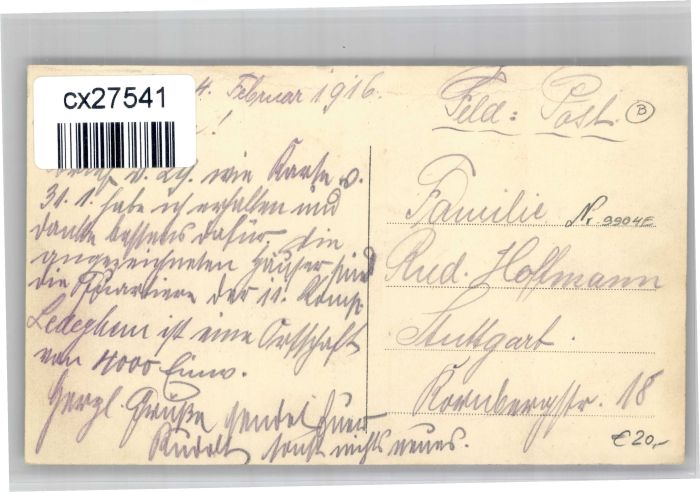 cx27541
4. Februar 1916.
!
Feld: Post. B
Brief v. 29. wie Karte v.
31. 1. habe ich erhalten und
danke bestens dafür, die
angezeichneten Häuser sind
die Quartiere der 11. Komp.
Ledeghem ist eine Ortschaft
von 4000 Einw.
Herzl. Grüße sendet Euer
Rudolf sonst nichts neues.
Familie Nr. 9904E
Rud. Hoffmann
Stuttgart.
Kornbergstr. 18
€20,-